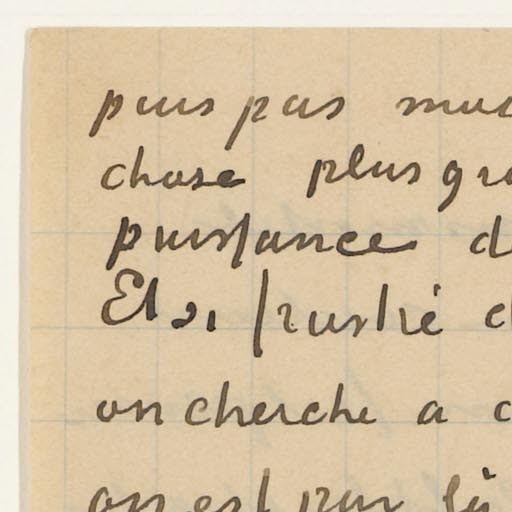 puis pas
chose plus
puissance
Et si frustré
on cherche a
on est pas